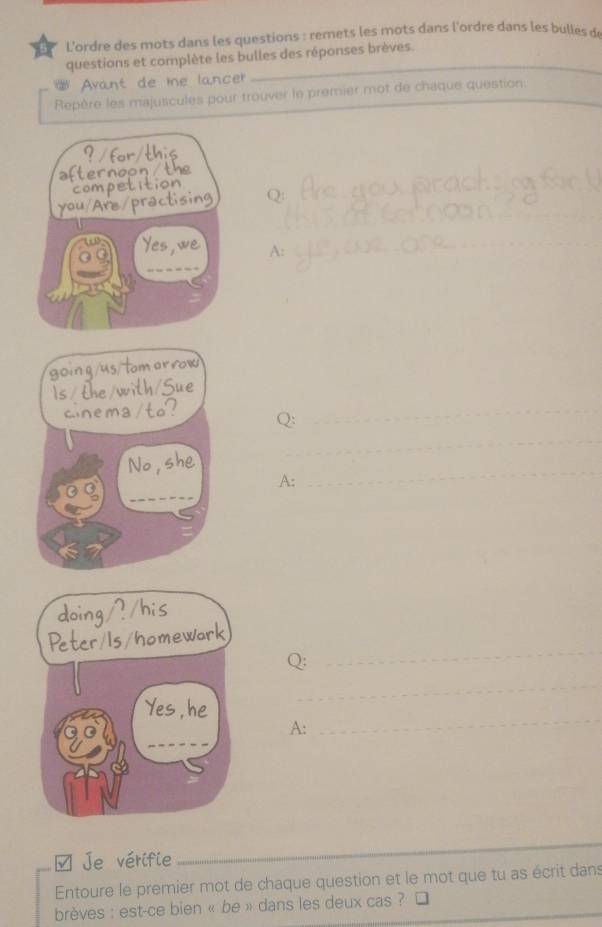 5 L'ordre des mots dans les questions : remets les mots dans l'ordre dans les bulles de
questions et complète les bulles des réponses brèves.
Avant de me lancer
Repère les majuscules pour trouver le premier mot de chaque question.
? / for / this
afternoon / the
competition
you / Are / practising
Yes, we
Q: Are you practising for
this afternoon ?
A: yes, we are
going / us / tomorrow
Is / the / with / Sue
cinema / to ?
No, she
Q:
A:
doing / ? / his
Peter / Is / homework
Yes, he
Q:
A:
Je vérifie
Entoure le premier mot de chaque question et le mot que tu as écrit dans
brèves : est-ce bien « be » dans les deux cas ?